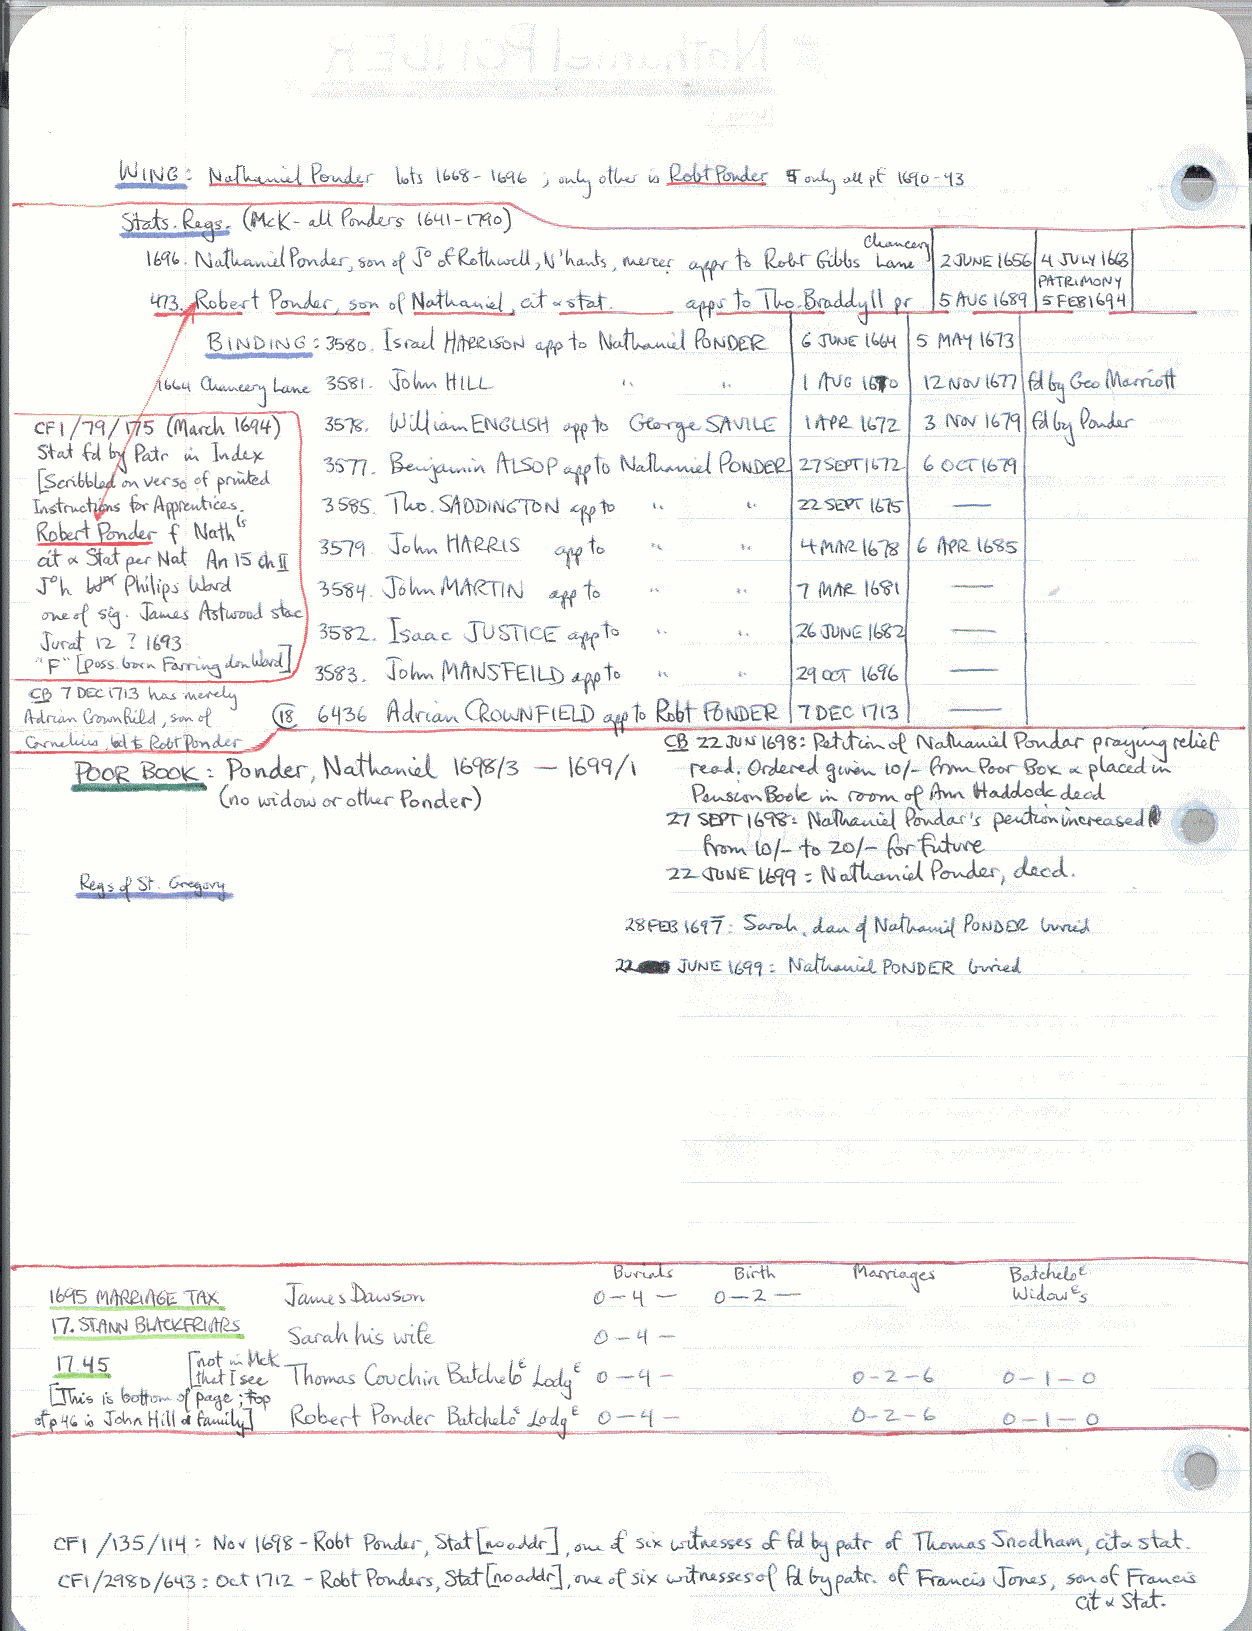 WING: Nathaniel Ponder lots 1668-1696; only other is Robt Ponder 5 only all pt 1690-93
Stats. Regs. (McK - all Ponders 1641-1790)
1696. Nathaniel Ponder, son of Jº of Rothwell, N'hants, mercer appr to Robt Gibbs Chancery Lane 2 JUNE 1656 4 JULY 1663
473. Robert Ponder, son of Nathaniel, cit & stat. appr to Tho. Braddyll pr 5 AUG 1689 PATRIMONY 5 FEB 1694
BINDING: 3580. Israel HARRISON app to Nathaniel PONDER 6 JUNE 1664 5 MAY 1673
1664 Chancery Lane 3581. John HILL " " 1 AUG 1670 12 NOV 1677 fd by Geo Marriott
3578. William ENGLISH app to George SAVILE 1 APR 1672 3 NOV 1679 fd by Ponder
3577. Benjamin ALSOP app to Nathaniel PONDER 27 SEPT 1672 6 OCT 1679
3585. Tho. SADDINGTON app to " " 22 SEPT 1675 —
3579. John HARRIS app to " " 4 MAR 1678 6 APR 1685
3584. John MARTIN app to " " 7 MAR 1681 —
3582. Isaac JUSTICE app to " " 26 JUNE 1682 —
3583. John MANSFEILD app to " " 29 OCT 1696 —
18 6436 Adrian CROWNFIELD app to Robt PONDER 7 DEC 1713 —
CF1/79/175 (March 1694)
Stat fd by Patr in Index
[Scribbled on verso of printed
Instructions for Apprentices.
Robert Ponder f Nath
cit & Stat per Nat An 15 Ch II
Jºh Philips Ward
one of sig. James Astwood stac
Jurat 12 ? 1693
"F" [poss. born Farringdon Ward]
CB 7 DEC 1713 has merely
Adrian Crownfild, son of
Cornelius, bd to Robt Ponder
POOR BOOK: Ponder, Nathaniel 1698/3 — 1699/1
(no widow or other Ponder)
CB 22 JUN 1698: Petition of Nathaniel Pondar praying relief
read. Ordered given 10/- from Poor Box & placed in
Pension Book in room of Ann Haddock decd
27 SEPT 1698: Nathaniel Pondar's pention increased
from 10/- to 20/- for future
22 JUNE 1699: Nathaniel Ponder, decd.
Regs of St. Gregory
28 FEB 1697: Sarah, dau of Nathaniel PONDER buried
22 JUNE 1699: Nathaniel PONDER buried
Burials Birth Marriages Batchelʳ Widowʳs
1695 MARRIAGE TAX James Dawson 0-4- 0-2-
17. ST ANN BLACKFRIARS Sarah his wife 0-4-
17.45 [not in McK that I see Thomas Couchin Batchelʳ Lodgʳ 0-4- 0-2-6 0-1-0
[This is bottom of page; top
of p46 is John Hill & family] Robert Ponder Batchelʳ Lodgʳ 0-4- 0-2-6 0-1-0
CF1/135/114: Nov 1698 - Robt Ponder, Stat [no addr], one of six witnesses of fd by patr of Thomas Snodham, cit & stat.
CF1/298D/643: Oct 1712 - Robt Ponders, Stat [no addr], one of six witnesses of fd by patr. of Francis Jones, son of Francis
cit & Stat.